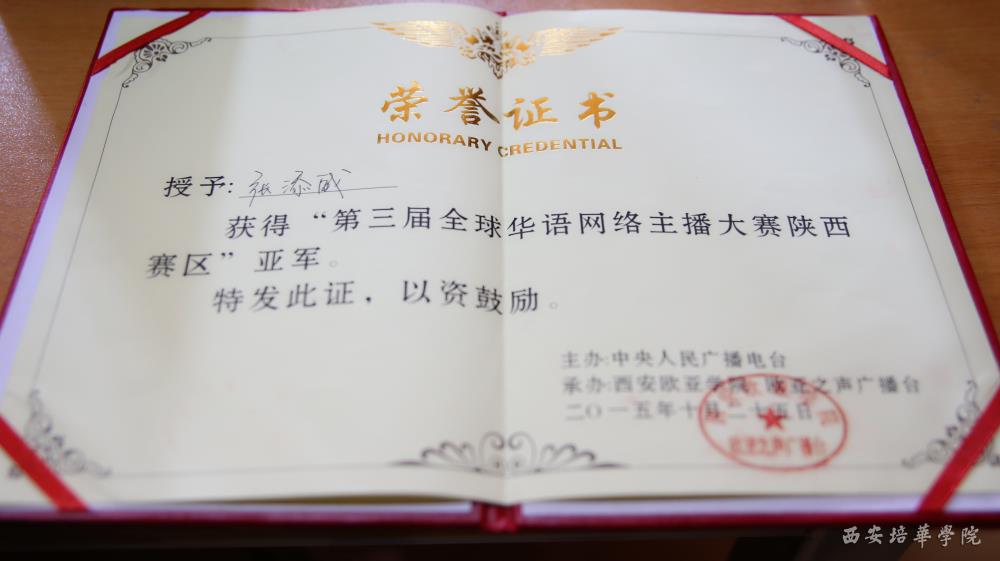 荣誉证书
HONORARY CREDENTIAL
授予:张添威
获得“第三届全球华语网络主播大赛陕西
赛区”亚军。
特发此证，以资鼓励。
主办:中央人民广播电台
承办:西安欧亚学院 欧亚之声广播台
二〇一五年十月二十五日
西安培華学院